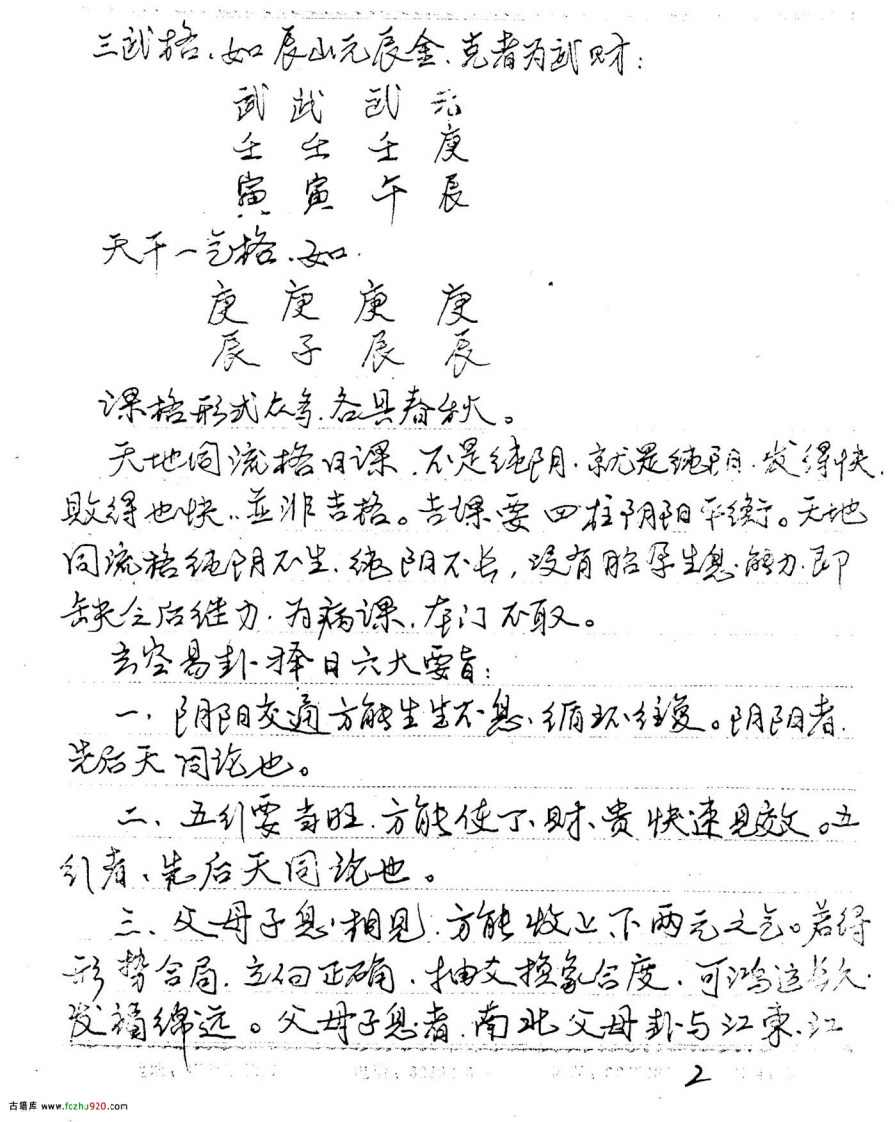 三武格、如辰山元辰金、克者为武财：
武 武 武 元
壬 壬 壬 庚
寅 寅 午 辰
天干一气格、如·
庚 庚 庚 庚
辰 子 辰 辰
课格形式众多、各具春秋。
天地同流格日课、不是纯阴、就是纯阳、发得快、
败得也快、並非吉格。吉课要四柱阴阳平衡。天地
同流格纯阴不生、纯阳不长，没有胎孕生息能力、即
缺乏后继力、为病课、本门不取。
玄空易卦择日六大要旨：
一、阴阳交通方能生生不息、循环往复。阴阳者、
先后天同论也。
二、五行要当旺、方能使丁、财、贵快速见效。五
行者、先后天同论也。
三、父母子息相见、方能收上下两元之气。若得
形势合局、立向正确、抽爻换象合度、可鸿运长久、
发福绵远。父母子息者、南北父母卦与江东、江
2
古籍库 www.fczhu920.com